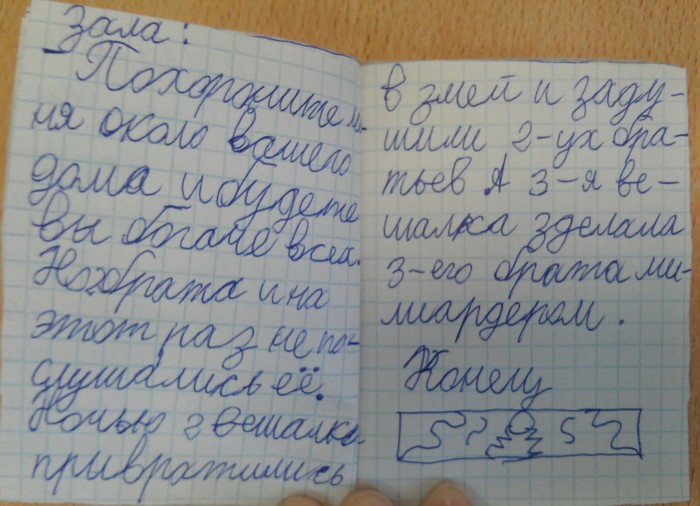 зала:
– Похороните ме-
ня около вашего
дома и будете
вы богаче всех.
Но 2 брата и на
этот раз не по-
слушались её.
Ночью 2 вешалки
привратились
в змей и заду-
шили 2-ух бра-
тьев А 3-я ве-
шалка зделала
3-его брата ми-
лиардером.
Конец